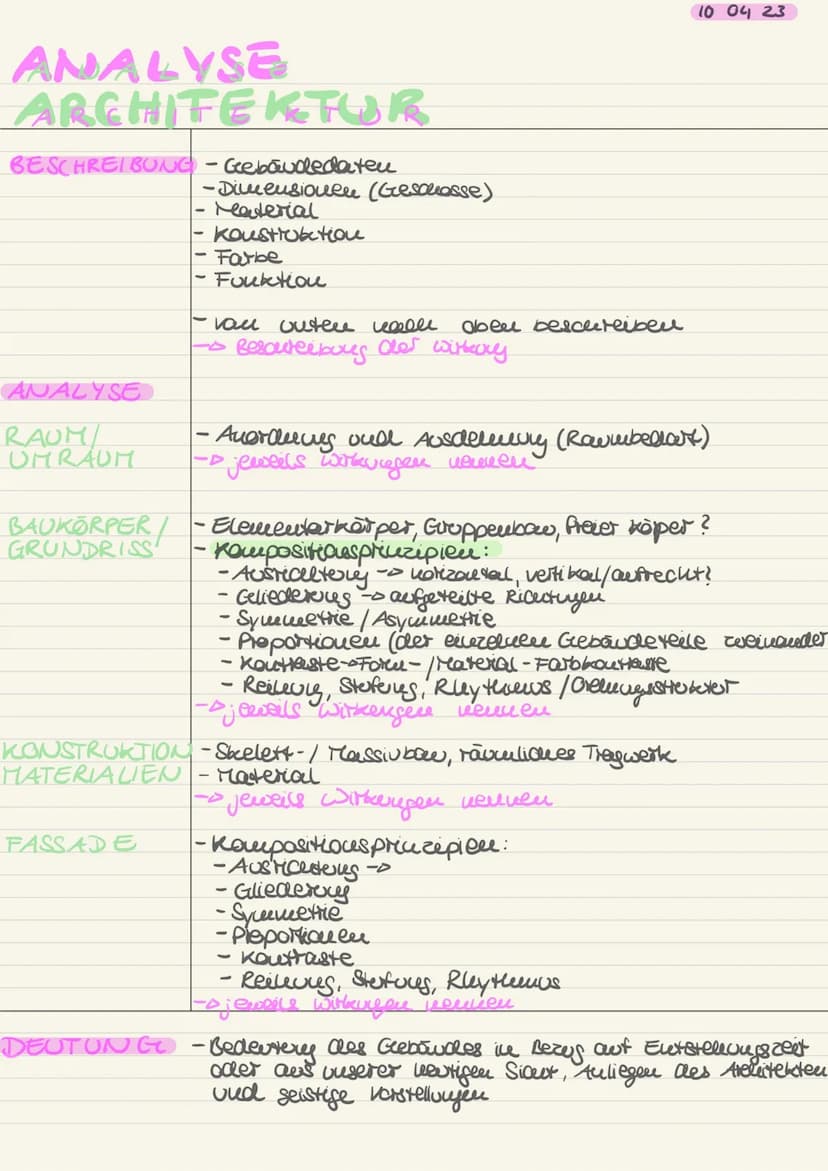 10 04 23
ANALYSE
ANALYSE
ARCHITEKTUR
ARCHITEKTUR
BESCHREIBUNG - Gebäudedaten
- Dimensionen (Geschosse)
- Material
- Konstruktion
- Farbe
- Funktion
- von unten nach oben beschreiben
-> Beschreibung der Wirkung
ANALYSE
RAUM/ - Anordnung und Ausdehnung (Raumbedarf)
UMRAUM -> jeweils Wirkungen nennen
BAUKÖRPER/ - Elementarkörper, Gruppenbau, freier Köper?
GRUNDRISS - Kompositionsprinzipien:
- Ausrichtung -> horizontal, vertikal/aufrecht?
- Gliederung -> aufgeteilte Richtungen
- Symmetrie / Asymmetrie
- Proportionen (der einzelnen Gebäudeteile zueinander
- Kontraste -> Form- / Material - Farbkontraste
- Reihung, Stufung, Rhythmus / Ordnungsstruktur
-> jeweils Wirkungen nennen
KONSTRUKTION - Skelett- / Massivbau, räumliches Tragwerk
MATERIALIEN - Material
-> jeweils Wirkungen nennen
FASSADE - Kompositionsprinzipien:
- Ausrichtung ->
- Gliederung
- Symmetrie
- Proportionen
- Kontraste
- Reihung, Stufung, Rhythmus
-> jeweils Wirkungen nennen
DEUTUNG - Bedeutung des Gebäudes in Bezug auf Entstehungszeit
oder aus unserer heutigen Sicht, Anliegen des Architekten
und geistige Vorstellungen